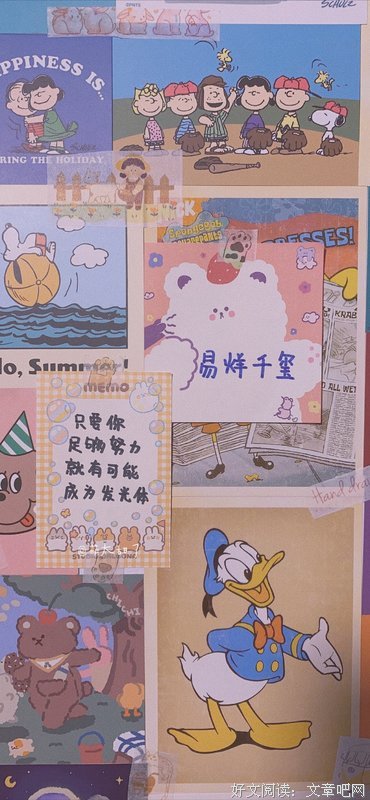 SCHULZ
HAPPINESS IS...
SCHULZ
RING THE HOLIDAY
SpongeBob
Squarepants
ESSES!
KRAB
易烊千玺
lo, Summer!
MEMO
只要你
足够努力
就有可能
成为发光体
Hand dra
好文阅读：文章吧网